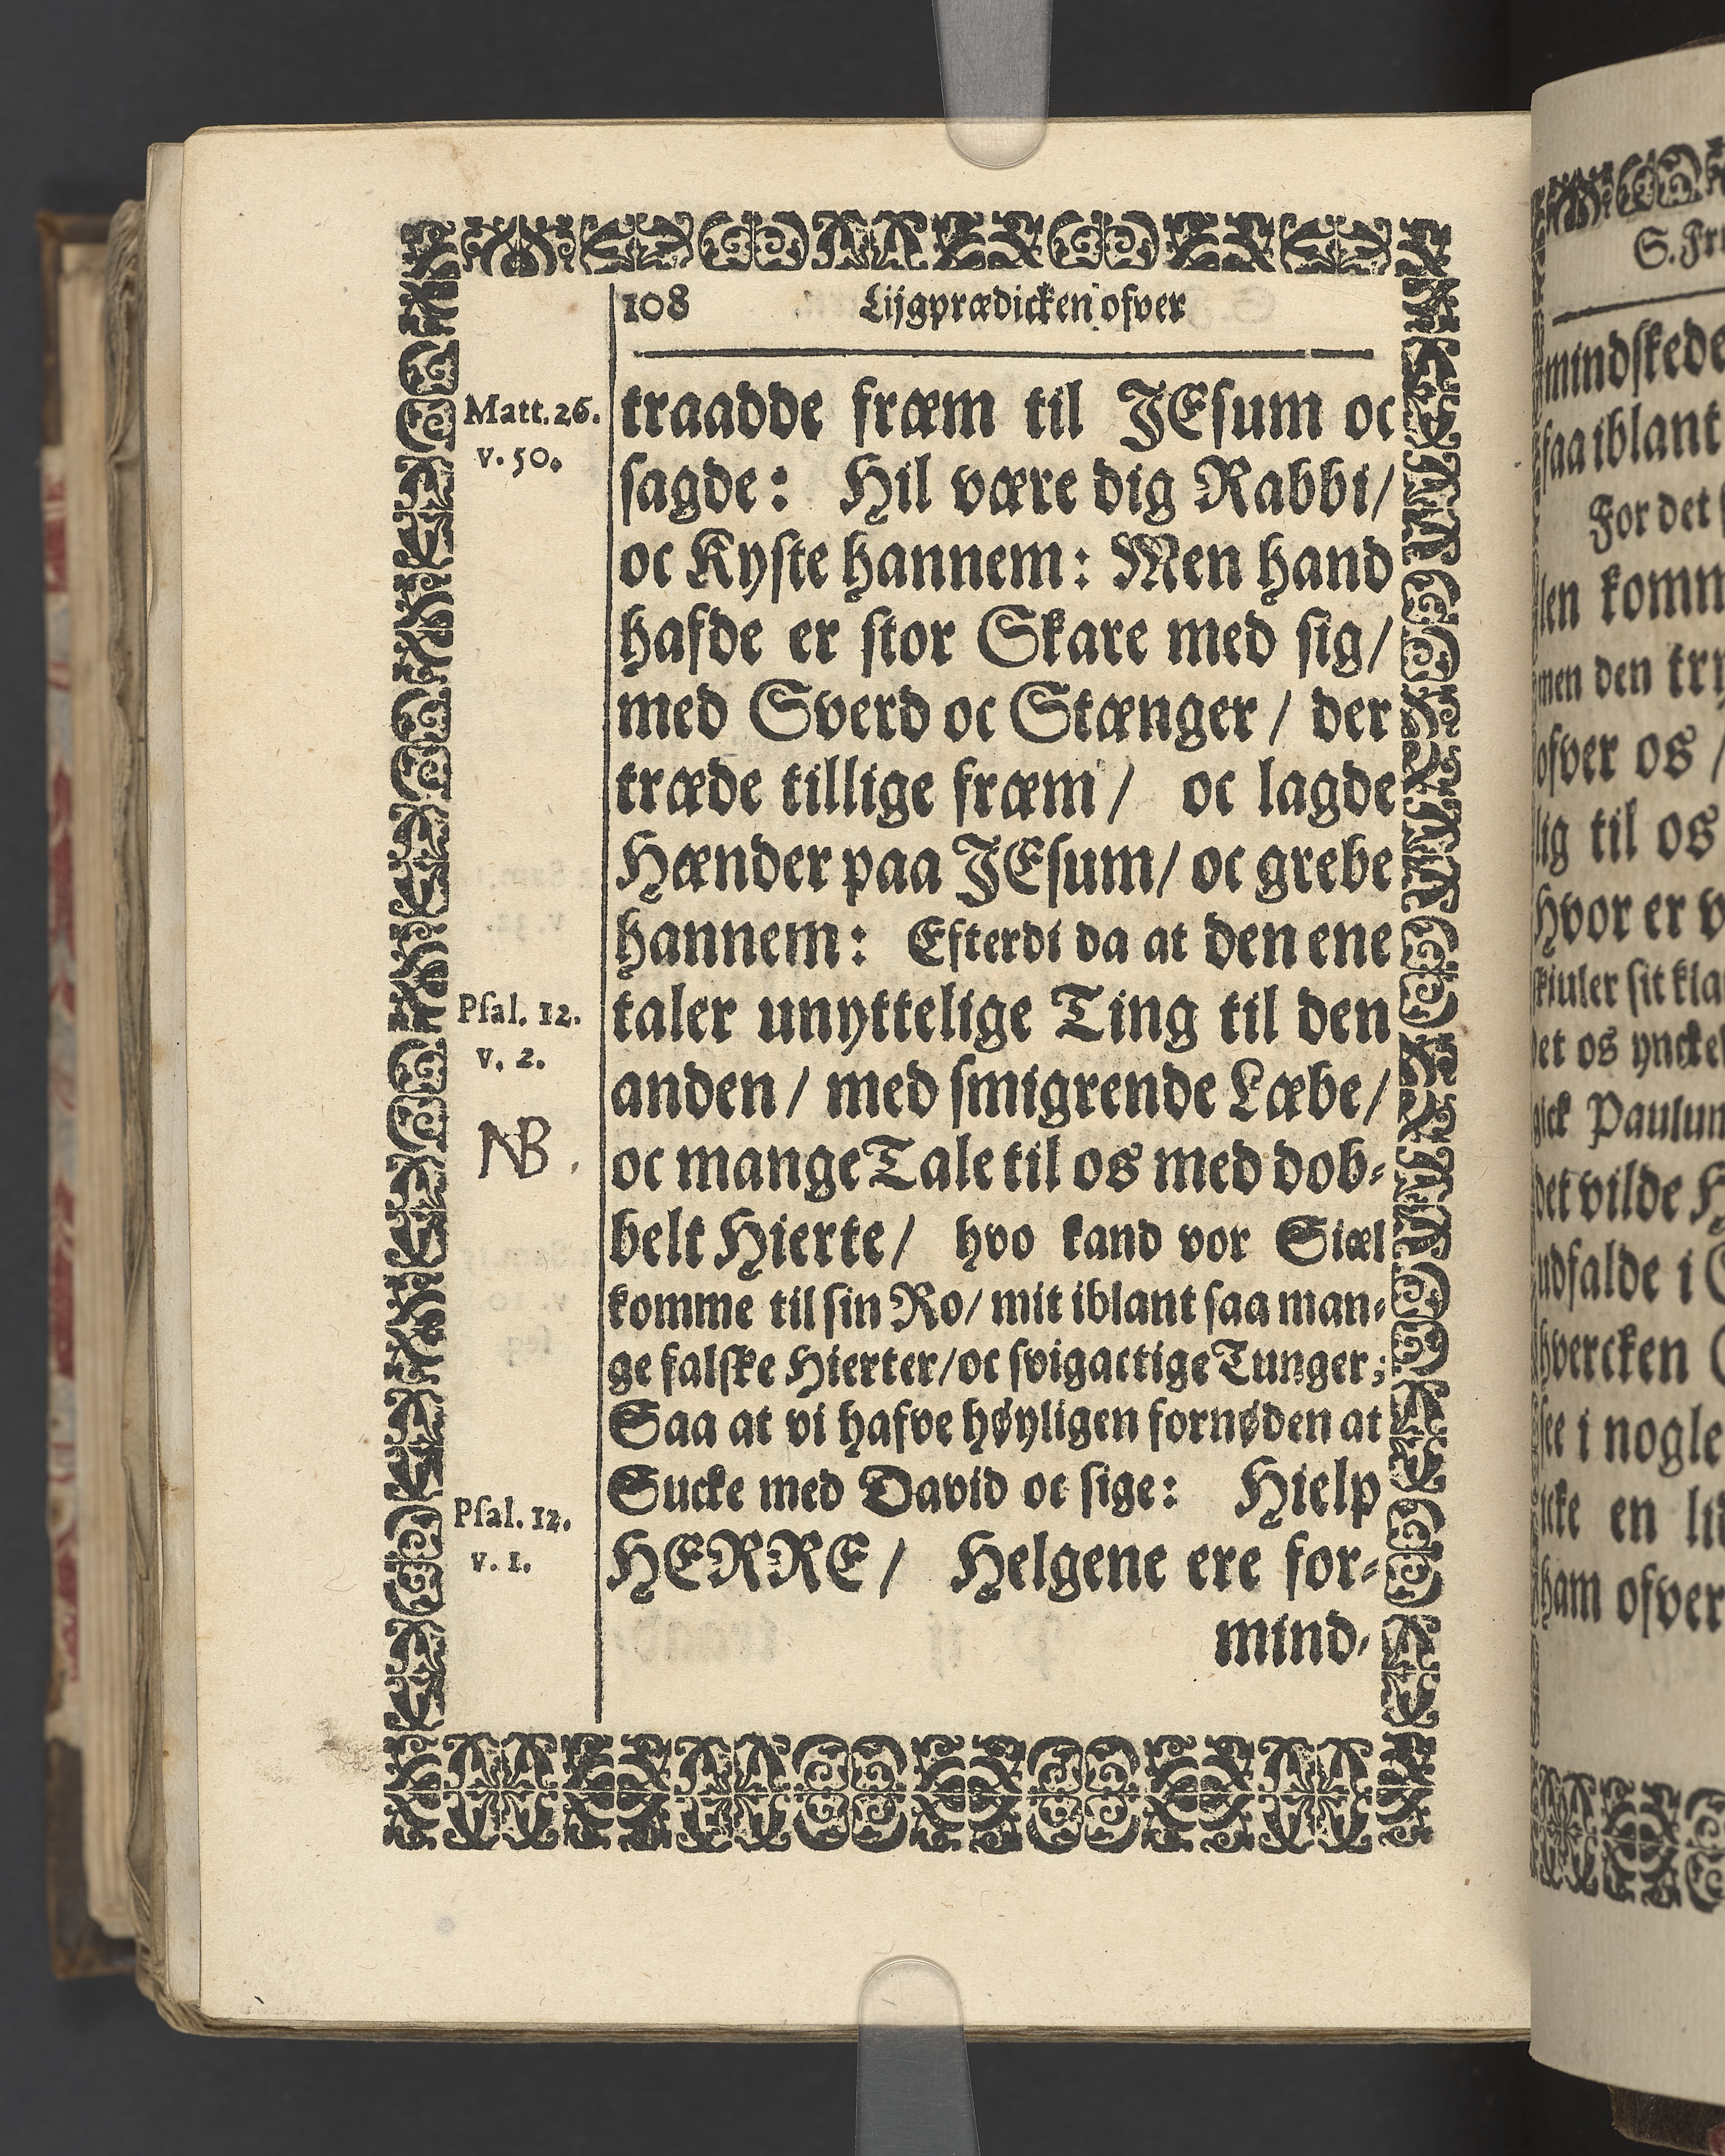 108 Lijgprædicken ofver
Matt. 26.
v. 50.
traadde fræm til JEsum oc
sagde: Hil være dig Rabbi/
oc Kyste hannem: Men hand
hafde er stor Skare med sig/
med Sverd oc Stænger / der
træde tillige fræm / oc lagde
Hænder paa JEsum / oc grebe
hannem: Efterdi da at den ene
Psal. 12.
v. 2.
taler unyttelige Ting til den
anden / med smigrende Læbe/
NB.
oc mange Tale til os med dob-
belt Hierte / hvo kand vor Siæl
komme til sin Ro / mit iblant saa man-
ge falske Hierter / oc svigactige Tunger;
Saa at vi hafve høyligen fornøden at
Sucke med David oc sige: Hielp
Psal. 12.
v. 1.
HERRE / Helgene ere for-
mind-
S. Fr
mindskede
saa iblant
For det
len komm
men den try
ofver os /
lig til os
Hvor er v
skiuler sit kla
et os yncke
gick Paulum
det vilde H
udfalde i
hvercken
see i nogle
icke en li
ham ofver